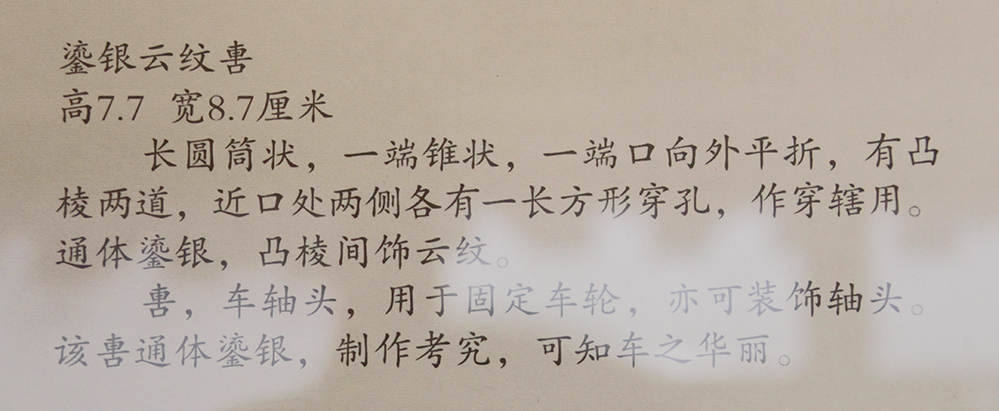 鎏银云纹軎
高7.7 宽8.7厘米
长圆筒状，一端锥状，一端口向外平折，有凸
棱两道，近口处两侧各有一长方形穿孔，作穿辖用。
通体鎏银，凸棱间饰云纹。
軎，车轴头，用于固定车轮，亦可装饰轴头。
该軎通体鎏银，制作考究，可知车之华丽。